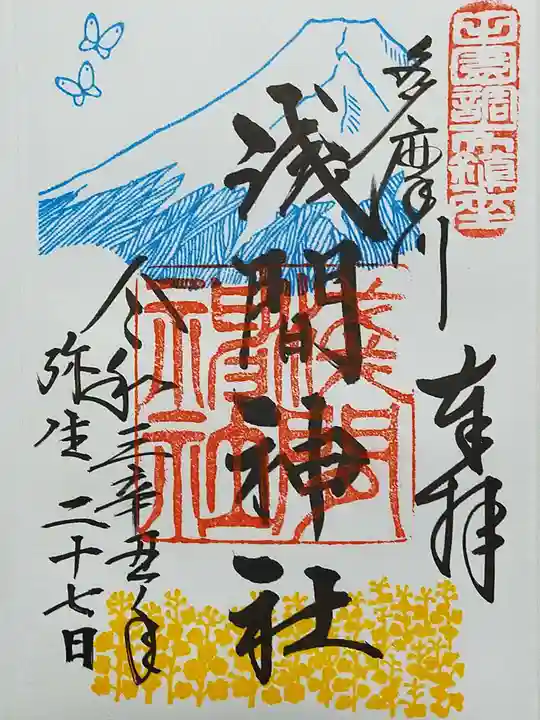 田園調布鎮座
奉拝
多摩川
浅間神社
浅間神社
令和三辛丑年
弥生二十七日